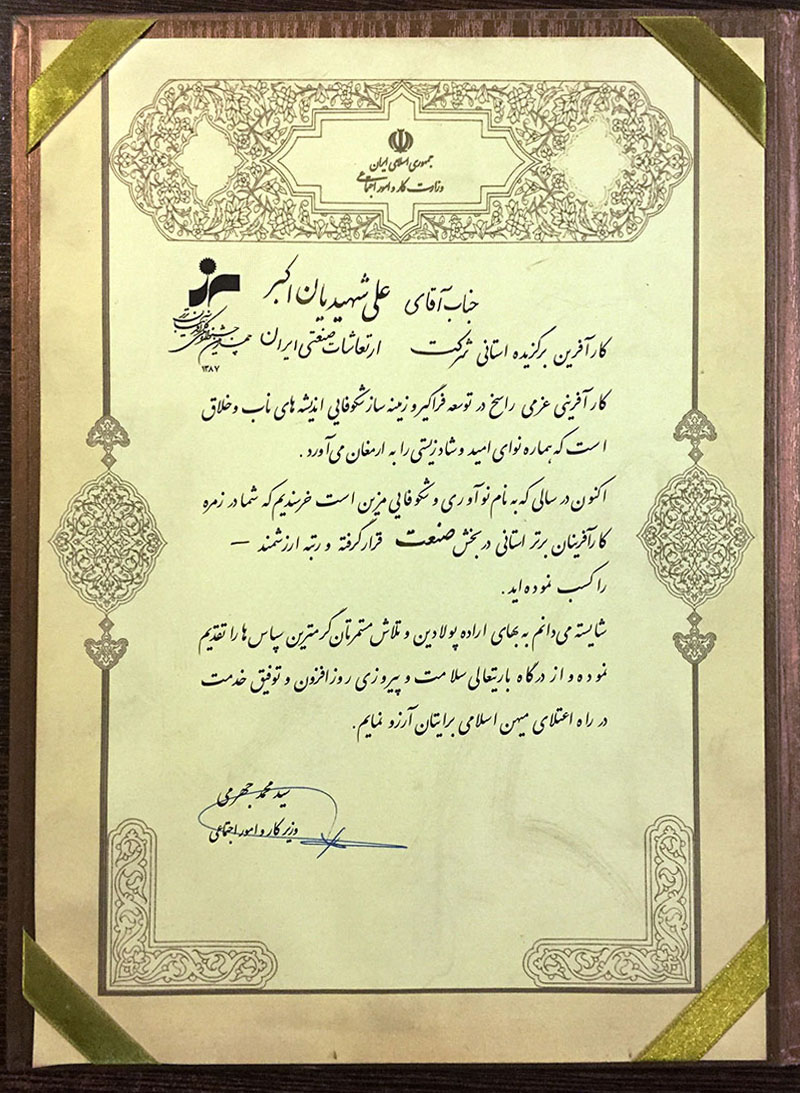 جمهوری اسلامی ایران
وزارت کار و امور اجتماعی
جناب آقای علی شهیدیان اکبر
کارآفرین برگزیده استانی شرکت ارتعاشات صنعتی ایران
۱۳۸۷
کارآفرینی عزمی راسخ در توسعه فراگیر و زمینه ساز شکوفایی اندیشه های ناب و خلاق
است که هماره نوای امید و شادزیستی را به ارمغان می‌آورد.
اکنون در سالی که به نام نوآوری و شکوفایی مزین است خرسندیم که شما در زمره
کارآفرینان برتر استانی در بخش صنعت قرار گرفته و رتبه ارزشمند —
را کسب نموده اید.
شایسته می‌دانم به بهای اراده پولادین و تلاش مستمرتان گرمترین سپاس ها را تقدیم
نموده و از درگاه باریتعالی سلامت و پیروزی روزافزون و توفیق خدمت
در راه اعتلای میهن اسلامی برایتان آرزو نمایم.
سید محمد جهرمی
وزیر کار و امور اجتماعی